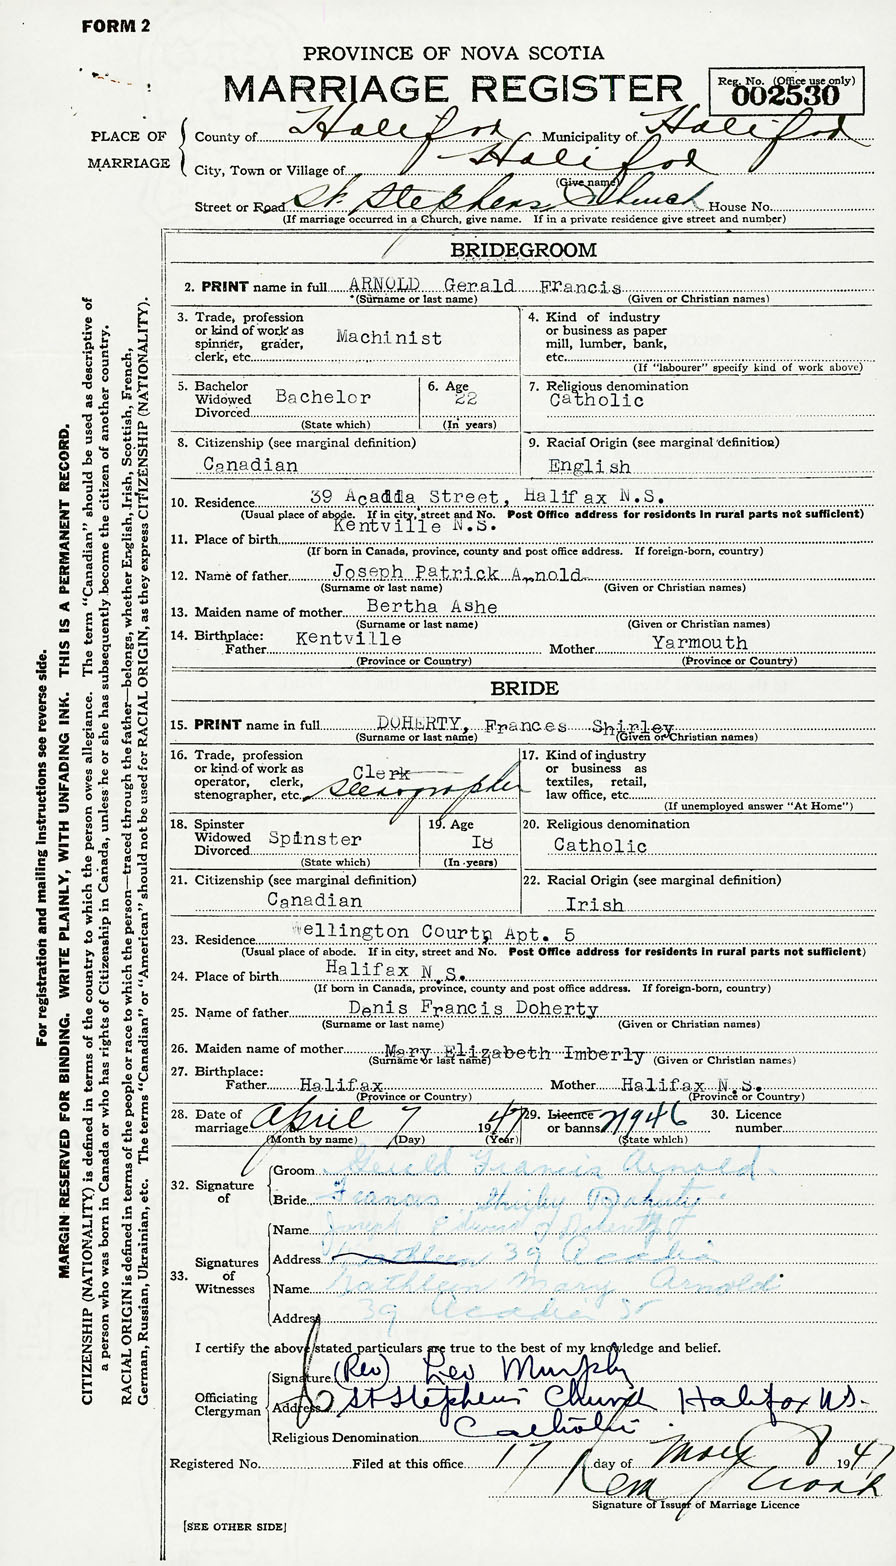 FORM 2
PROVINCE OF NOVA SCOTIA
MARRIAGE REGISTER
Reg. No. (Office use only)
002530
PLACE OF MARRIAGE
County of Halifax Municipality of Halifax
City, Town or Village of Halifax
(Give name)
Street or Road St. Stephens Church House No.
(If marriage occurred in a Church, give name. If in a private residence give street and number)
BRIDEGROOM
2. PRINT name in full ARNOLD Gerald Francis
(Surname or last name) (Given or Christian names)
3. Trade, profession or kind of work as spinner, grader, clerk, etc. Machinist
4. Kind of industry or business as paper mill, lumber, bank, etc.
(If "labourer" specify kind of work above)
5. Bachelor Widowed Divorced Bachelor
(State which)
6. Age 22
(In years)
7. Religious denomination
Catholic
8. Citizenship (see marginal definition)
Canadian
9. Racial Origin (see marginal definition)
English
10. Residence 39 Acadia Street, Halifax N.S.
(Usual place of abode. If in city, street and No. Post Office address for residents in rural parts not sufficient)
11. Place of birth Kentville N.S.
(If born in Canada, province, county and post office address. If foreign-born, country)
12. Name of father Joseph Patrick Arnold
(Surname or last name) (Given or Christian names)
13. Maiden name of mother Bertha Ashe
(Surname or last name) (Given or Christian names)
14. Birthplace:
Father Kentville Mother Yarmouth
(Province or Country) (Province or Country)
BRIDE
15. PRINT name in full DOHERTY, Frances Shirley
(Surname or last name) (Given or Christian names)
16. Trade, profession or kind of work as operator, clerk, stenographer, etc. Clerk stenographer
17. Kind of industry or business as textiles, retail, law office, etc.
(If unemployed answer "At Home")
18. Spinster Widowed Divorced Spinster
(State which)
19. Age I8
(In years)
20. Religious denomination
Catholic
21. Citizenship (see marginal definition)
Canadian
22. Racial Origin (see marginal definition)
Irish
23. Residence Wellington Court, Apt. 5
(Usual place of abode. If in city, street and No. Post Office address for residents in rural parts not sufficient)
24. Place of birth Halifax N.S.
(If born in Canada, province, county and post office address. If foreign-born, country)
25. Name of father Denis Francis Doherty
(Surname or last name) (Given or Christian names)
26. Maiden name of mother Mary Elizabeth Imberly
(Surname or last name) (Given or Christian names)
27. Birthplace:
Father Halifax Mother Halifax N.S.
(Province or Country) (Province or Country)
28. Date of marriage April 7 1947
(Month by name) (Day) (Year)
29. Licence or banns 21946
(State which)
30. Licence number
32. Signature of
Groom Gerald Francis Arnold
Bride Frances Shirley Doherty
33. Signatures of Witnesses
Name Joseph
Address 39 Acadia
Name Kathleen Mary Arnold
Address 39 Acadia St
I certify the above stated particulars are true to the best of my knowledge and belief.
Officiating Clergyman
Signature (Rev) Leo Murphy
Address St Stephens Church Halifax NS.
Religious Denomination Catholic
Registered No. Filed at this office 17 day of May 1947
Signature of Issuer of Marriage Licence
[SEE OTHER SIDE]
For registration and mailing instructions see reverse side.
MARGIN RESERVED FOR BINDING. WRITE PLAINLY, WITH UNFADING INK. THIS IS A PERMANENT RECORD.
CITIZENSHIP (NATIONALITY) is defined in terms of the country to which the person owes allegiance. The term "Canadian" should be used as descriptive of
a person who was born in Canada or who has rights of Citizenship in Canada, unless he or she has subsequently become the citizen of another country.
RACIAL ORIGIN is defined in terms of the people or race to which the person—traced through the father—belongs, whether English, Irish, Scottish, French,
German, Russian, Ukrainian, etc. The terms "Canadian" or "American" should not be used for RACIAL ORIGIN, as they express CITIZENSHIP (NATIONALITY).